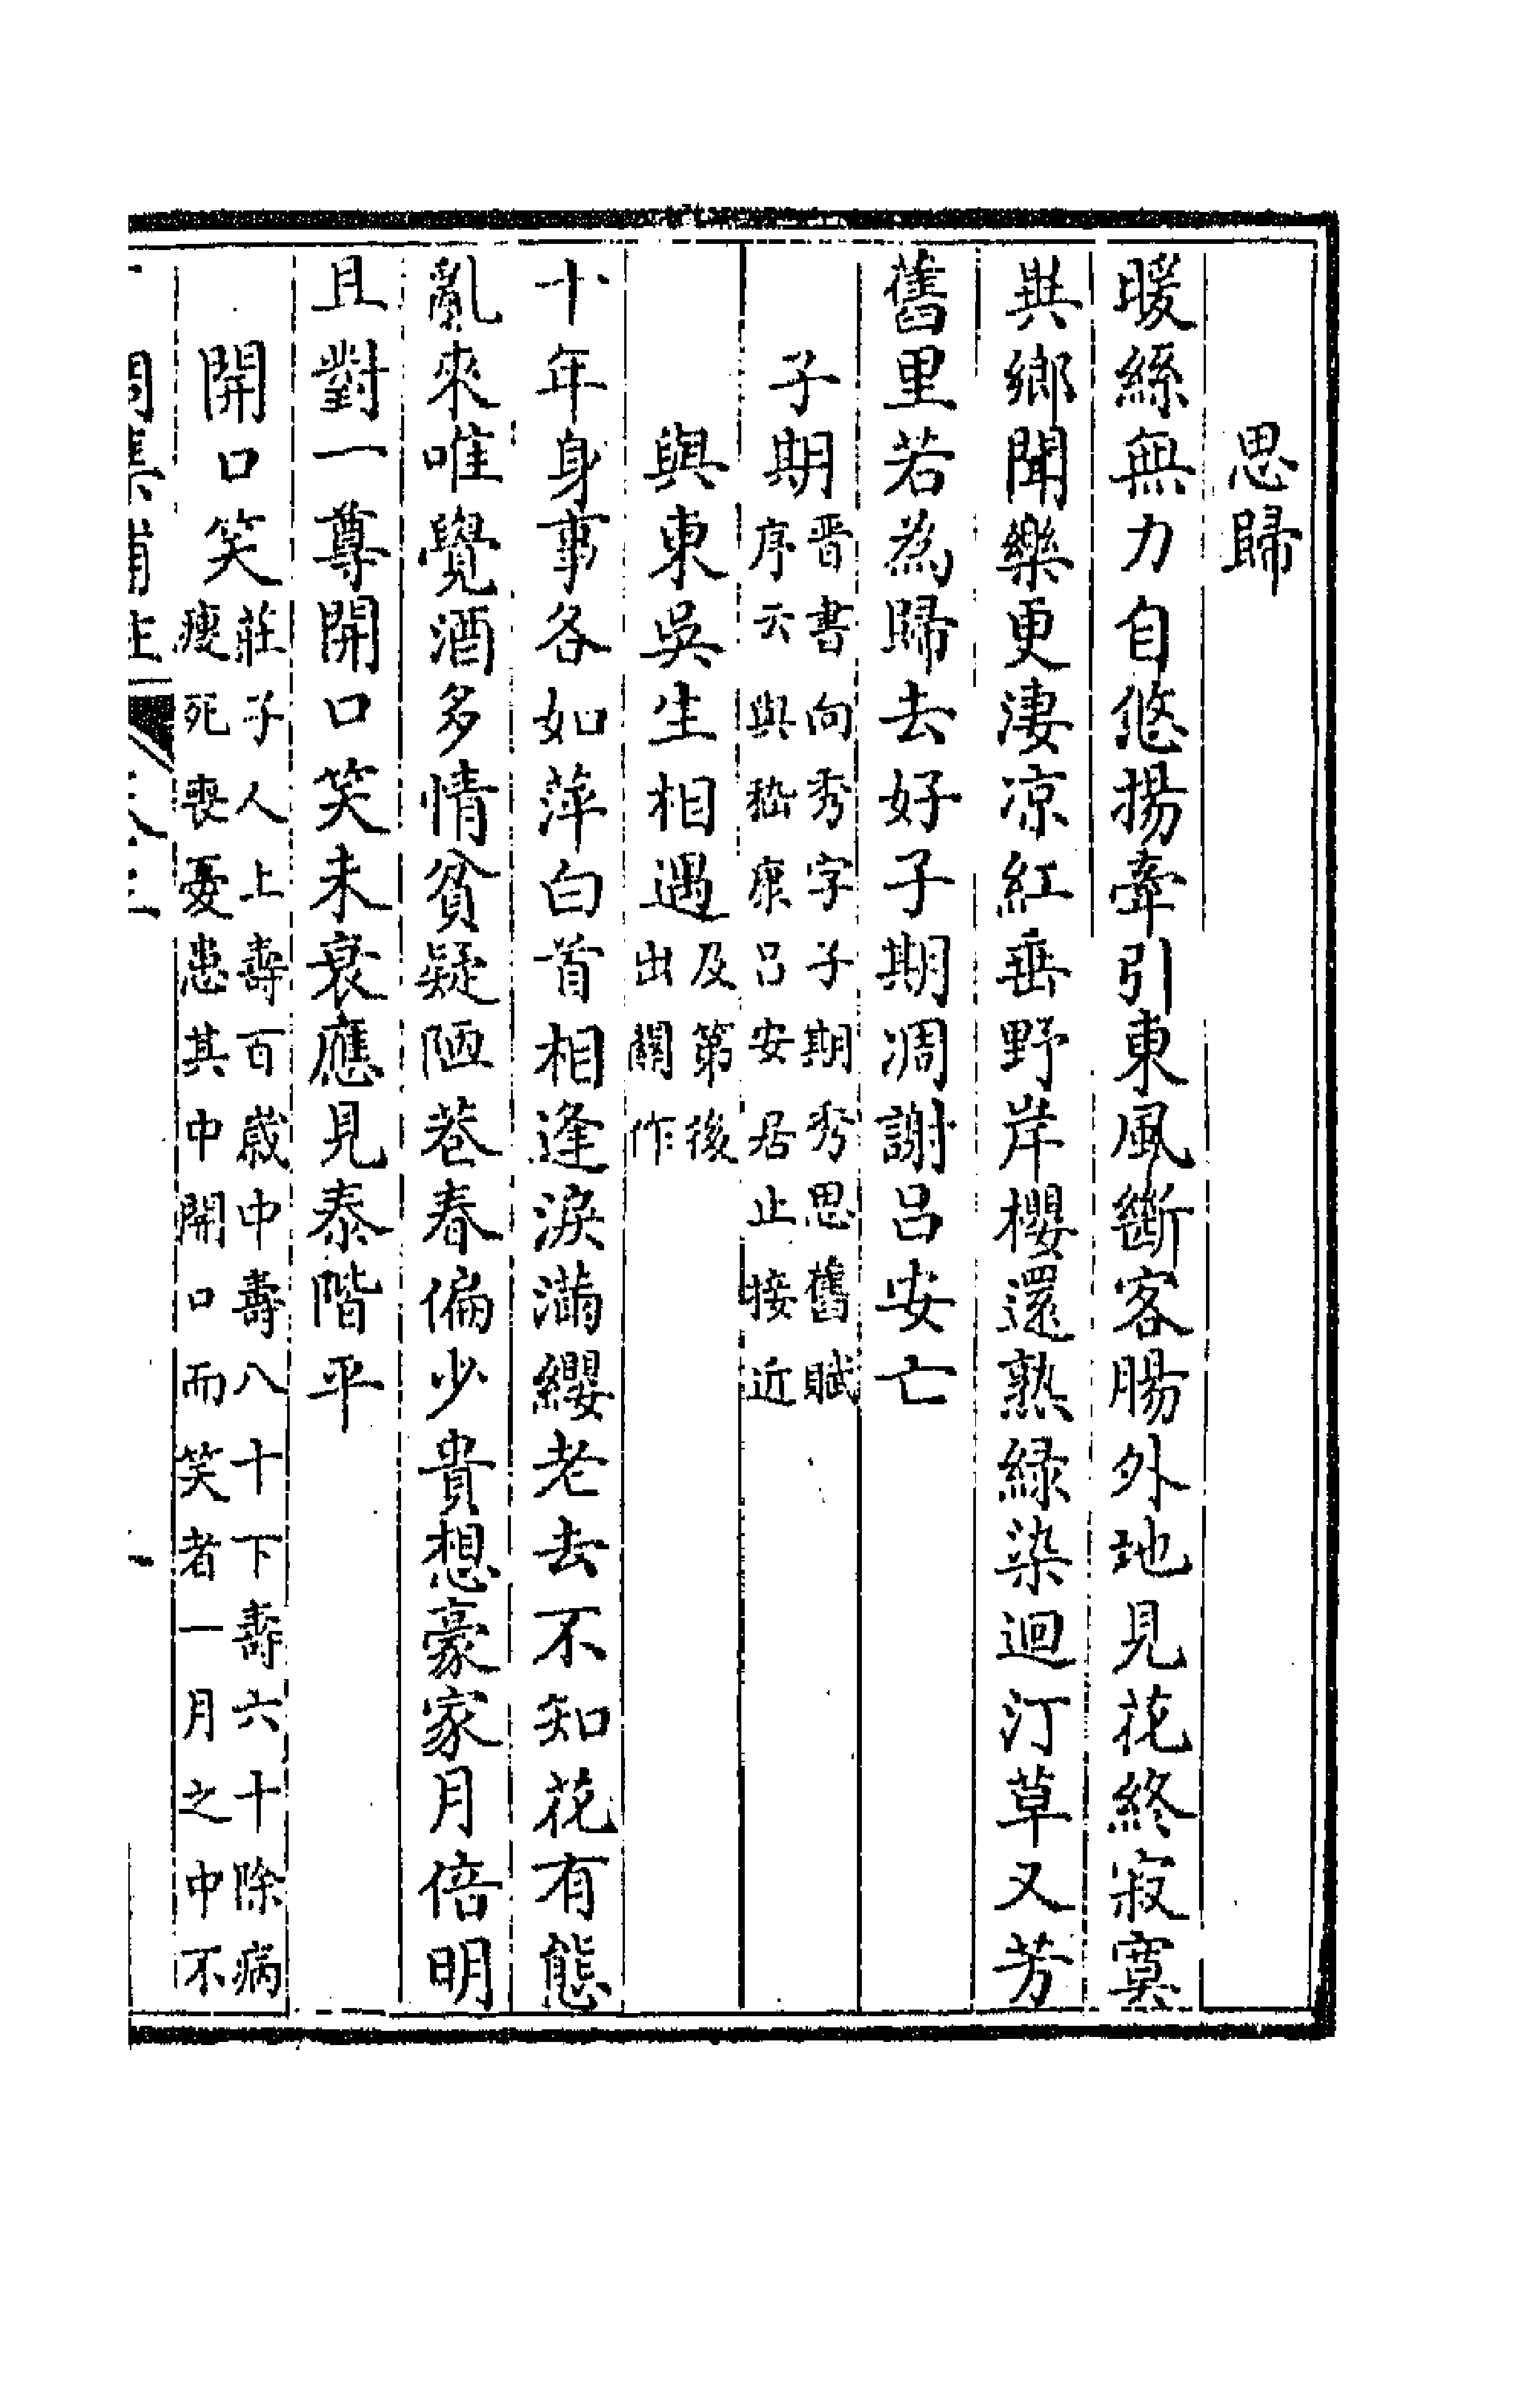 思歸
暖絲無力自悠揚牽引東風斷客腸外地見花終寂寞
異鄉聞樂更淒凉紅垂野岸櫻還熟綠染迴汀草又芳
舊里若為歸去好子期凋謝呂安亡
子期晋書向秀字子期秀思舊賦
序云與嵇康呂安居止接近
與東吳生相遇及第後
出關作
十年身事各如萍白首相逢淚滿纓老去不知花有態
亂來唯覺酒多情貧疑陋巷春偏少貴想豪家月倍明
且對一尊開口笑未衰應見泰階平
開口笑莊子人上壽百歲中壽八十下壽六十除病
瘦死喪憂患其中開口而笑者一月之中不